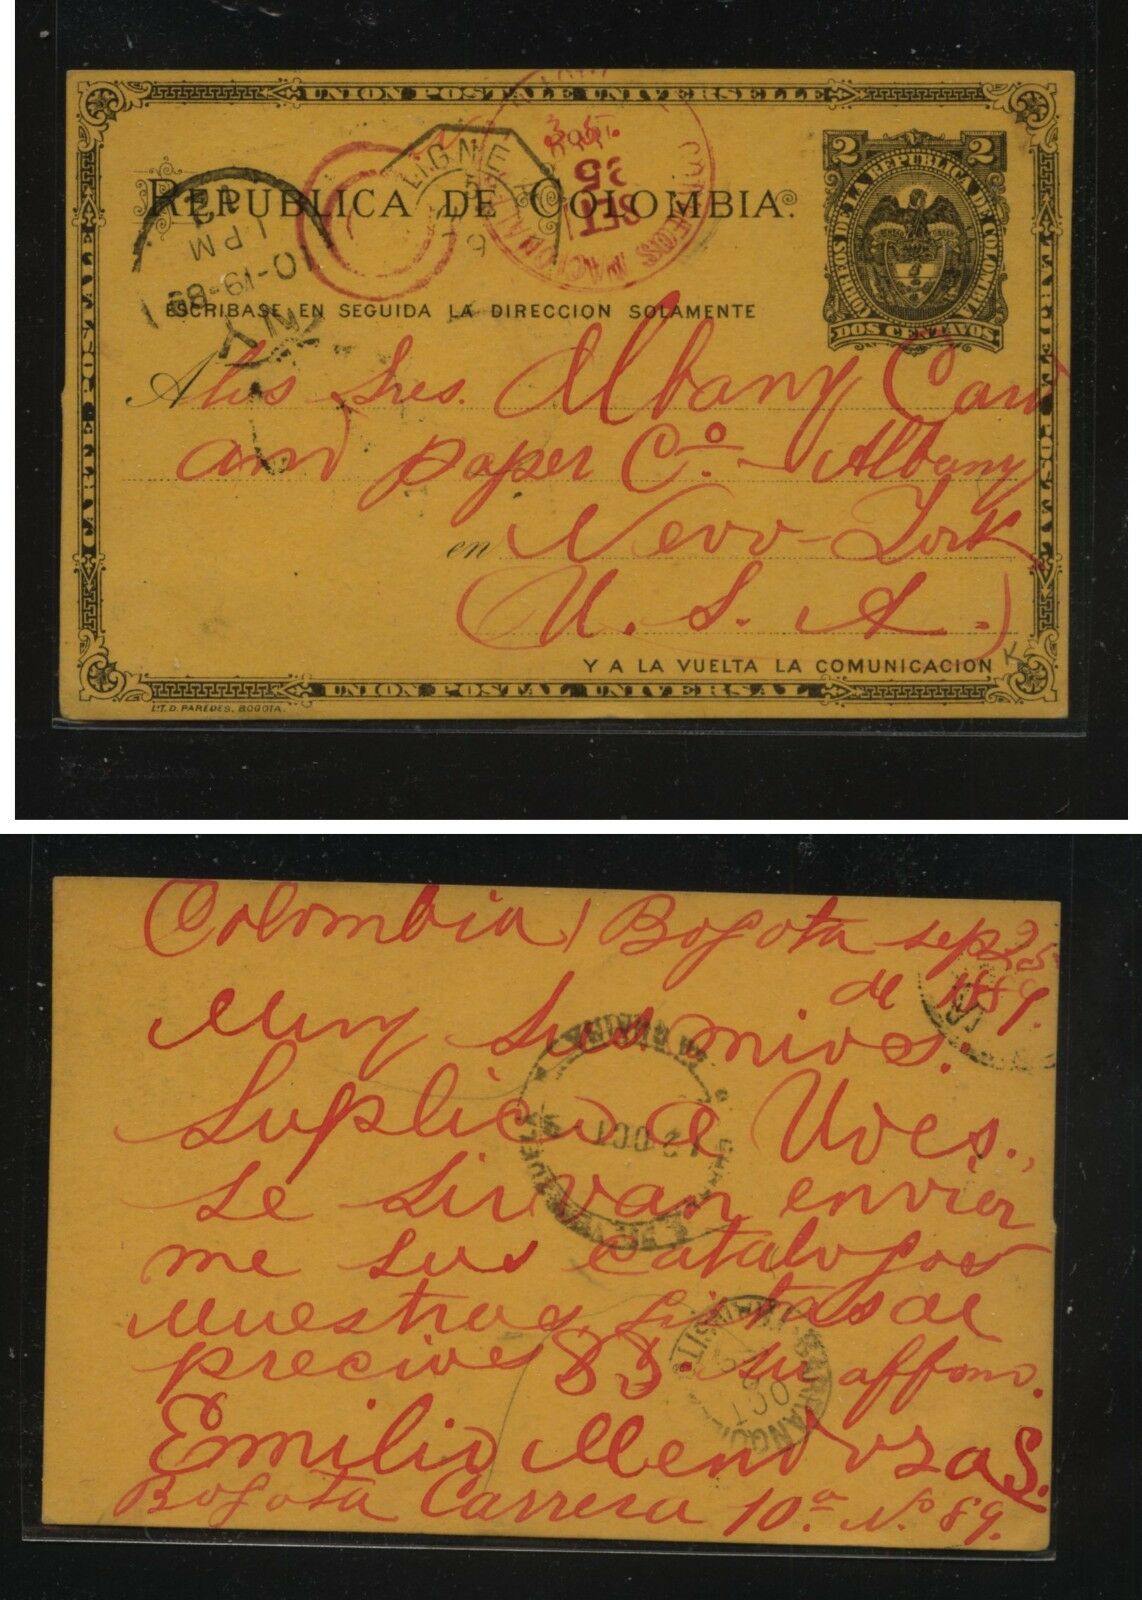 UNION POSTALE UNIVERSELLE
CARTE POSTALE
TARJETA POSTAL
REPUBLICA DE COLOMBIA.
2 2
CORREOS DE LA REPUBLICA DE COLOMBIA
DOS CENTAVOS
LIGNE
CORREOS NACIONALES
SET
25
10-19-89
1 PM
N Y
ESCRIBASE EN SEGUIDA LA DIRECCION SOLAMENTE
A los Sres. Albany Card
and paper Co. - Albany
en New-York
(U. S. A.)
Y A LA VUELTA LA COMUNICACION
K
UNION POSTAL UNIVERSAL
LIT. D. PAREDES. BOGOTA.
Colombia / Bogota sep 25
de 1889.
Muy Sres mios.
Suplico a Uves.,
se sirvan envier
me sus catalogos
muestras listas de
precios su affmo.
12 OCT
BARRANQUI
TRANSIT
OCT
Emilio Mendoza S.
Bogota Carrera 10a No 89.